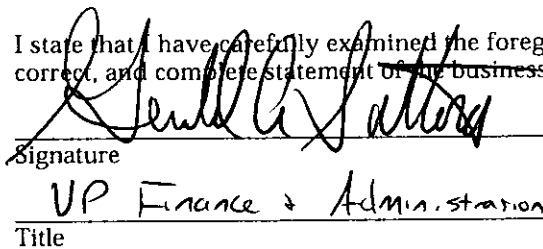 I state that I have carefully examined the foreg
correct, and complete statement of the business
Signature
VP Finance & Administration
Title